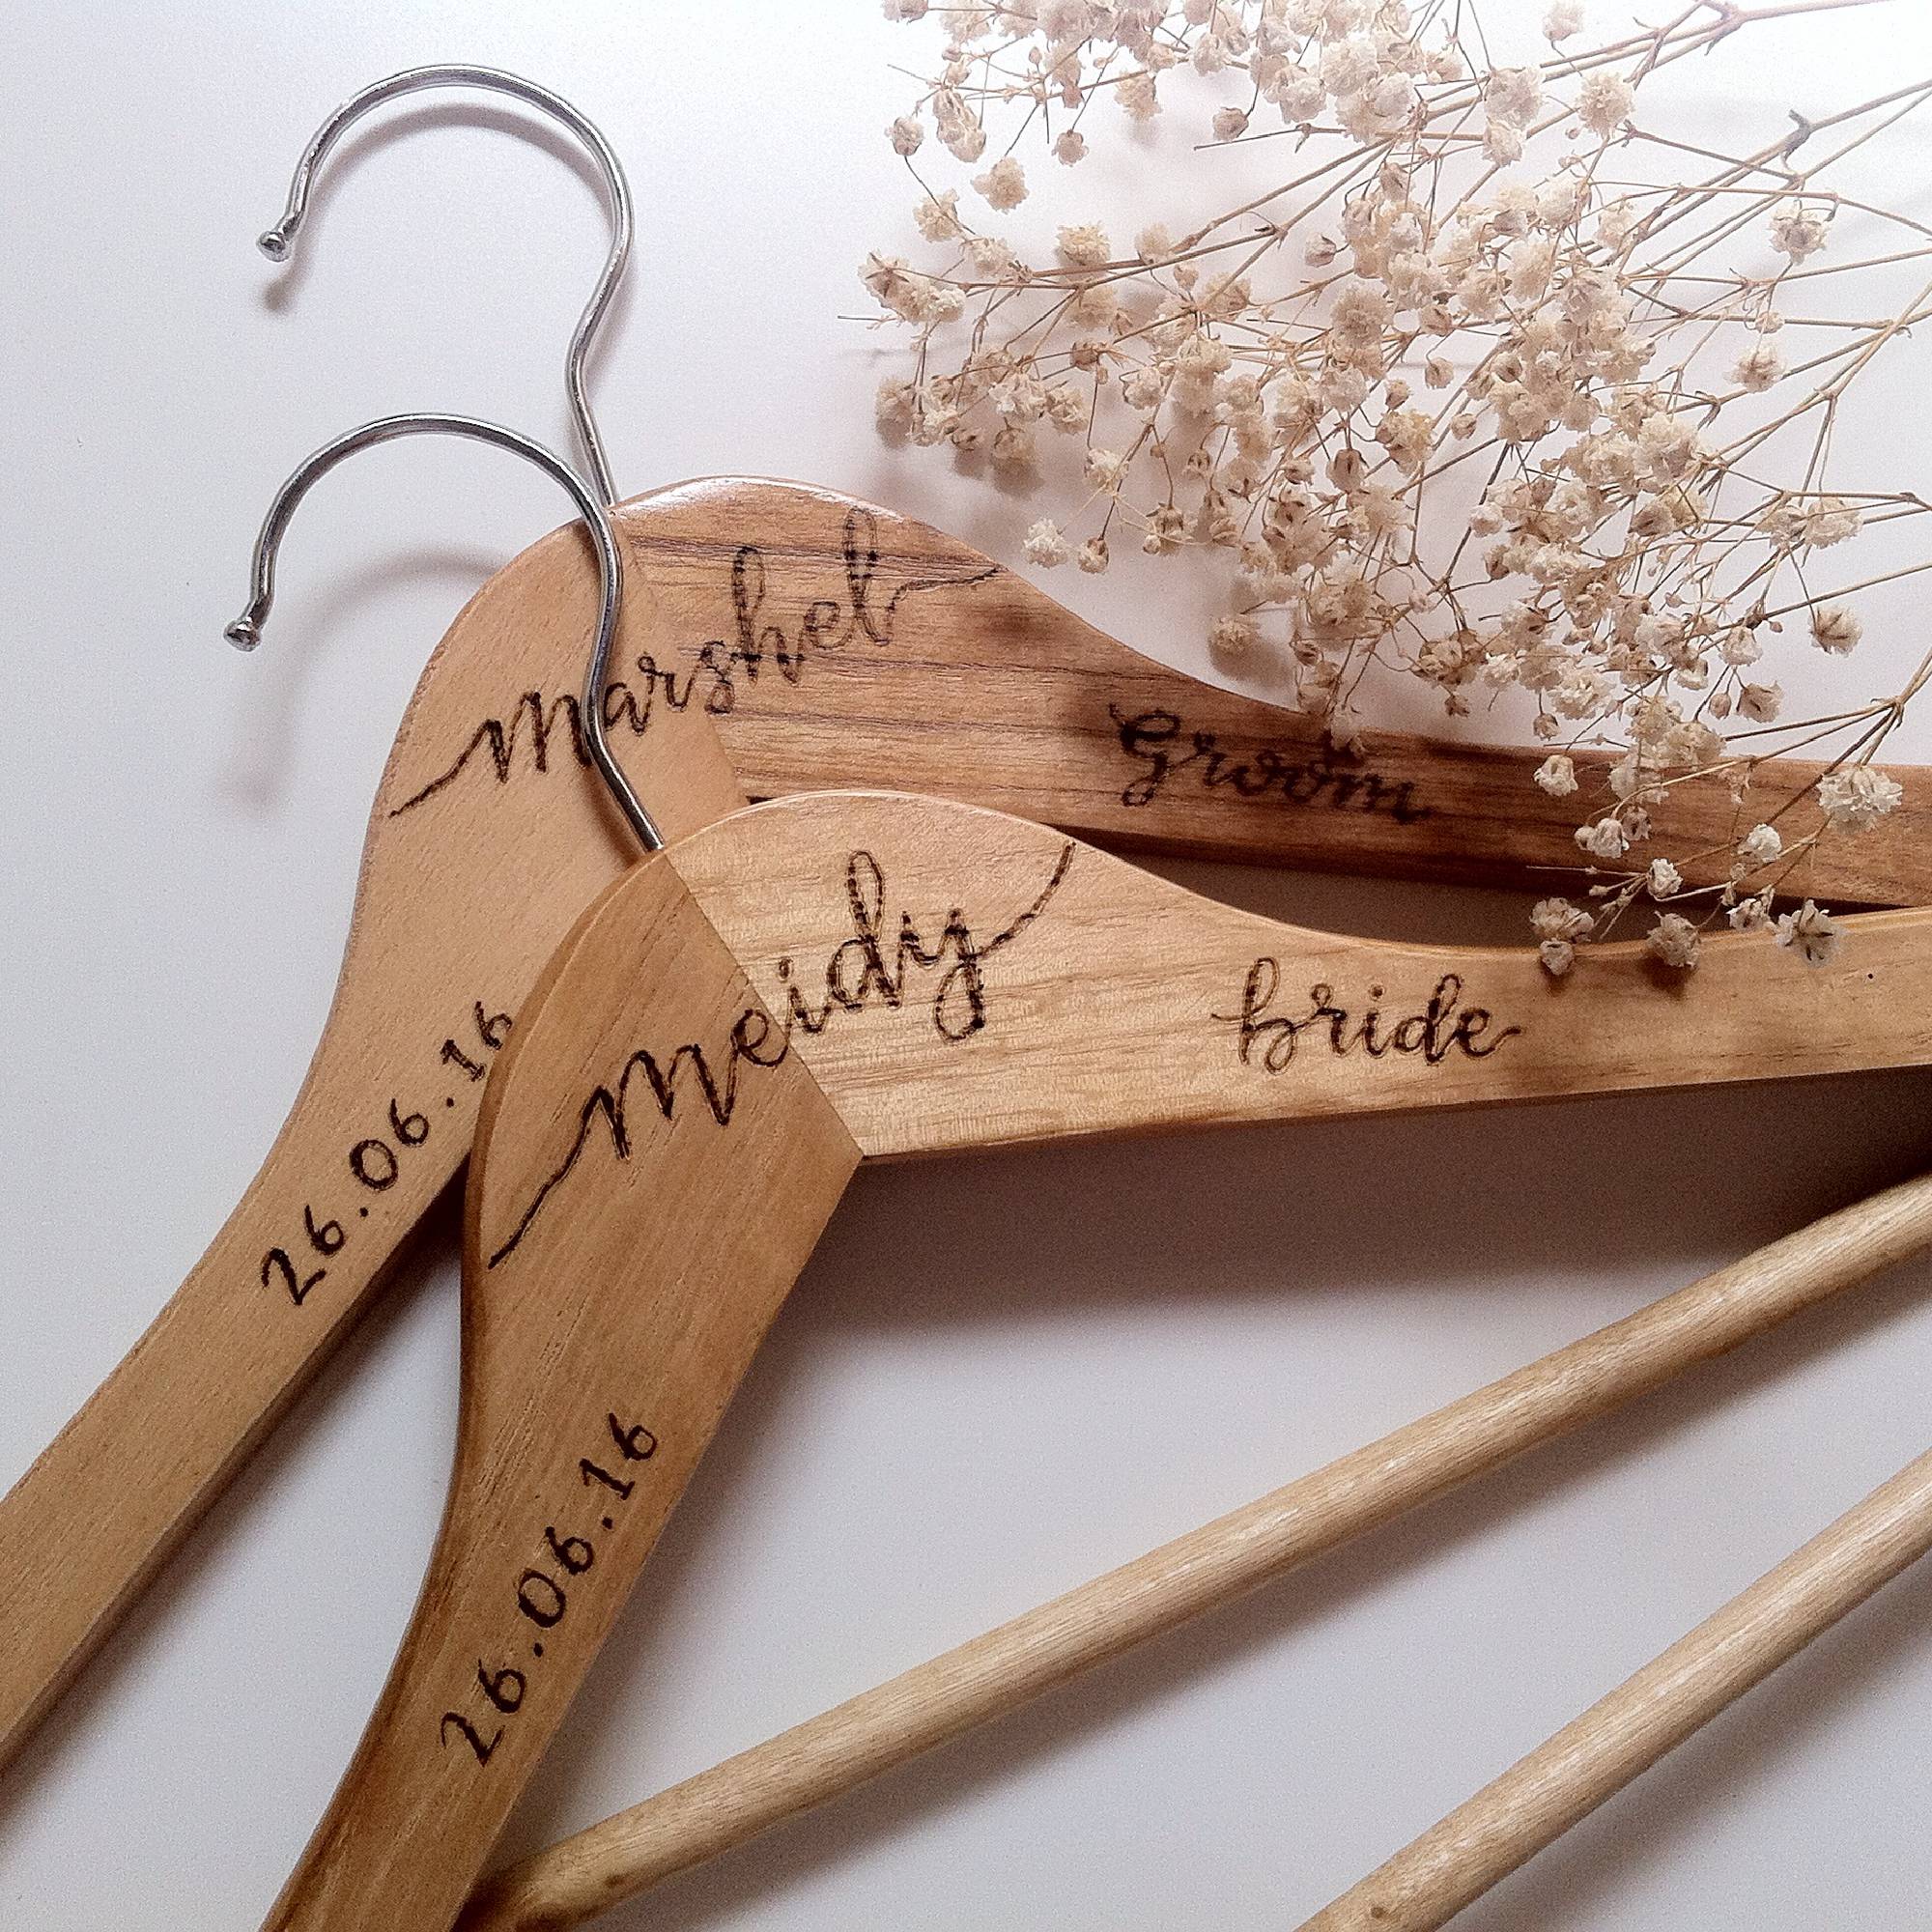 Marshel
Groom
26.06.16
Meidy
bride
26.06.16